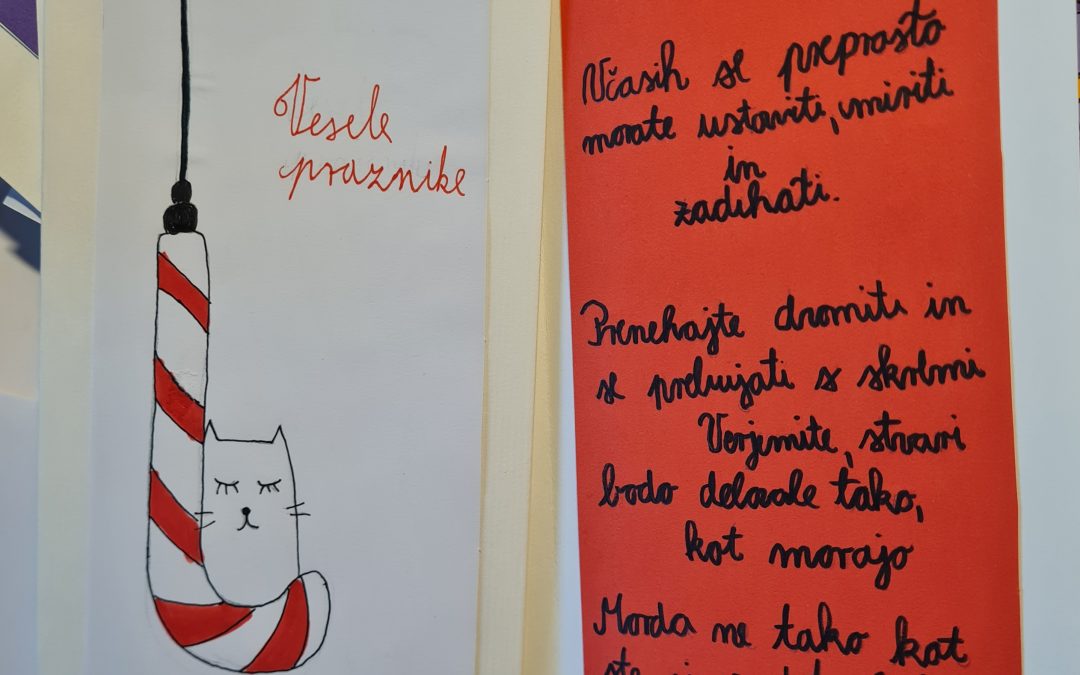 Vesele
praznike
Včasih se preprosto
morate ustaviti, umiriti
in
zadihati.
Prenehajte dromiti in
se prebujati s skrbmi
Verjemite, stvari
bodo delovale tako,
kot morajo
Morda ne tako kot